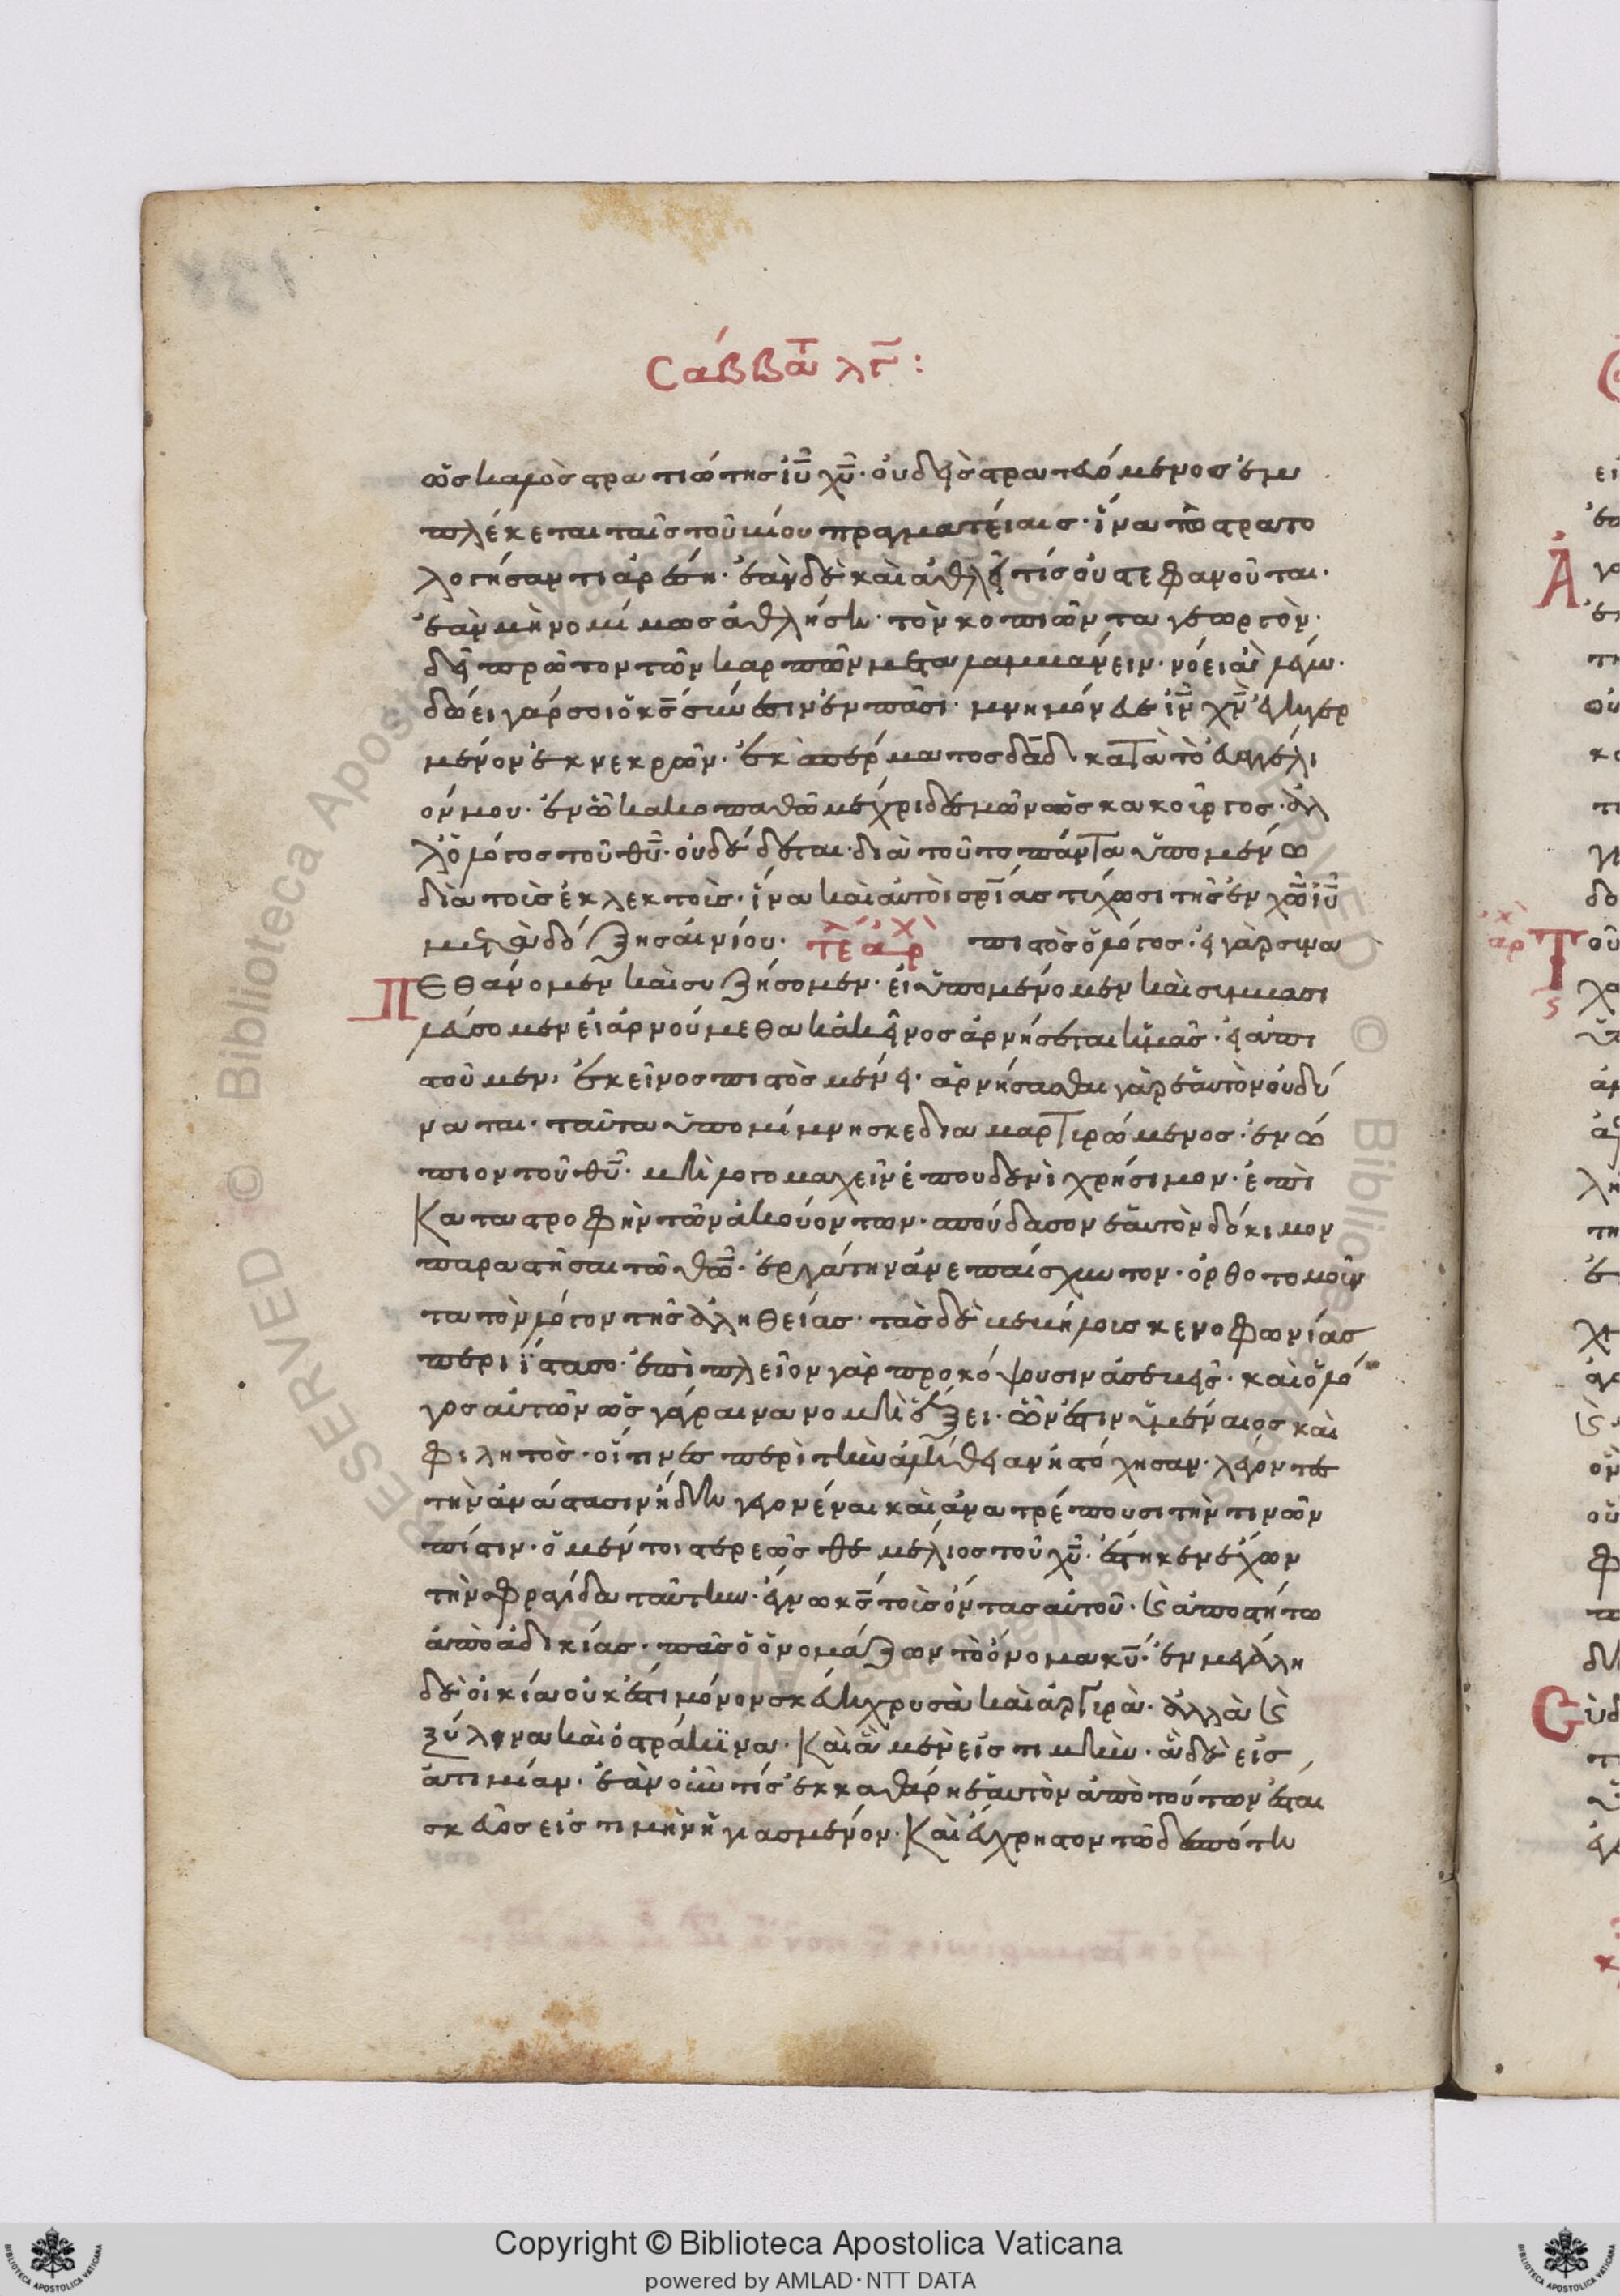 Σαββάτ λγ:
ὡς καλὸς στρατιώτης ἰῦ χῦ· οὐδεὶς στρατευόμενος ἐμ
πλέκεται ταῖς τοῦ βίου πραγματείαις· ἵνα τῶ στρατο
λογήσαντι ἀρέση· ἐὰν δὲ καὶ ἀθλῆ τίς οὐ στεφανοῦται·
ἐὰν μὴ νομίμως ἀθλήση· τὸν κοπιῶντα γεωργὸν·
δεῖ πρῶτον τῶν καρπῶν μεταλαμβάνειν· νόει ἃ λέγω·
δώει γάρ σοι ὁ κς σύνεσιν ἐν πᾶσι· μνημόνευε ἰν χν ἐγηγερ
μένον ἐκ νεκρῶν· ἐκ σπέρματος δαδ κατὰ τὸ εὐαγγέλι
όν μου· ἐν ὧ κακοπαθῶ μέχρι δεσμῶν ὡς κακοῦργος· ἀλλ
λ ὁ λόγος τοῦ θῦ· οὐ δέδεται· διὰ τοῦτο πάντα ὑπομένω
διὰ τοὺς ἐκλεκτοὺς· ἵνα καὶ αὐτοὶ σρίας τύχωσι τῆς ἐν χῶ ἰῦ
μετὰ δόξης αἰωνίου· τε αρχ πιστὸς ὁ λόγος· εἰ γὰρ συνα
Πεθάνομεν καὶ συζήσομεν· εἰ ὑπομένομεν καὶ συμβασι
λεύσομεν εἰ ἀρνούμεθα κἀκεῖνος ἀρνήσεται ἡμᾶς· εἰ ἀπι
στοῦμεν, ἐκεῖνος πιστὸς μένει· ἀρνήσασθαι γὰρ ἑαυτὸν οὐ δύ
ναται· ταῦτα ὑπομίμνησκε διαμαρτυρώμενος· ἐνώ
πιον τοῦ θῦ· μὴ λογομαχεῖν ἐπ ουδενὶ χρήσιμον· ἐπὶ
Καταστροφὴν τῶν ἀκουόντων· σπούδασον ἑαυτὸν δόκιμον
παραστῆσαι τῶ θῶ· ἐργάτην ἀνεπαίσχυντον· ὀρθοτομοῦν
τα τὸν λόγον τῆς ἀληθείας· τὰς δὲ βεβήλοις κενοφωνίας
περιΐστασο· ἐπὶ πλεῖον γὰρ προκόψουσιν ἀσεβεῖς· καὶ ὁ λό
γος αὐτῶν ὡς γάγραινα νομὴν ἕξει· ὧν ἐστιν ὑμέναιος καὶ
φιλητὸς· οἵτινες περὶ τὴν ἀλήθειαν ἠστόχησαν· λέγοντες
τὴν ἀνάστασιν ἤδη γεγονέναι καὶ ἀνατρέπουσι τὴν τινῶν
πίστιν· ὁ μέντοι στερεὸς θεμέλιος τοῦ χῦ· ἕστηκεν ἔχων
τὴν σφραγίδα ταύτην· ἔγνω κς τοὺς ὄντας αὐτοῦ· καὶ ἀποστήτω
ἀπὸ ἀδικίας· πᾶς ὁ ὀνομάζων τὸ ὄνομα κῦ· ἐν μεγάλη
δὲ οἰκία οὐκ ἔστι μόνον σκεύη χρυσὰ καὶ ἀργυρὰ· ἀλλὰ καὶ
ξύλινα καὶ ὀστράκϊνα· Καὶ ἃ μὲν εἰς τιμὴν· ἃ δὲ εἰς
ἀτιμίαν· ἐὰν οὖν τίς ἐκκαθάρη ἑαυτὸν ἀπὸ τούτων ἔσται
σκεῦος εἰς τιμὴν ἡγιασμένον· Καὶ εὔχρηστον τῶ δεσπότη
Copyright © Biblioteca Apostolica Vaticana
powered by AMLAD·NTT DATA